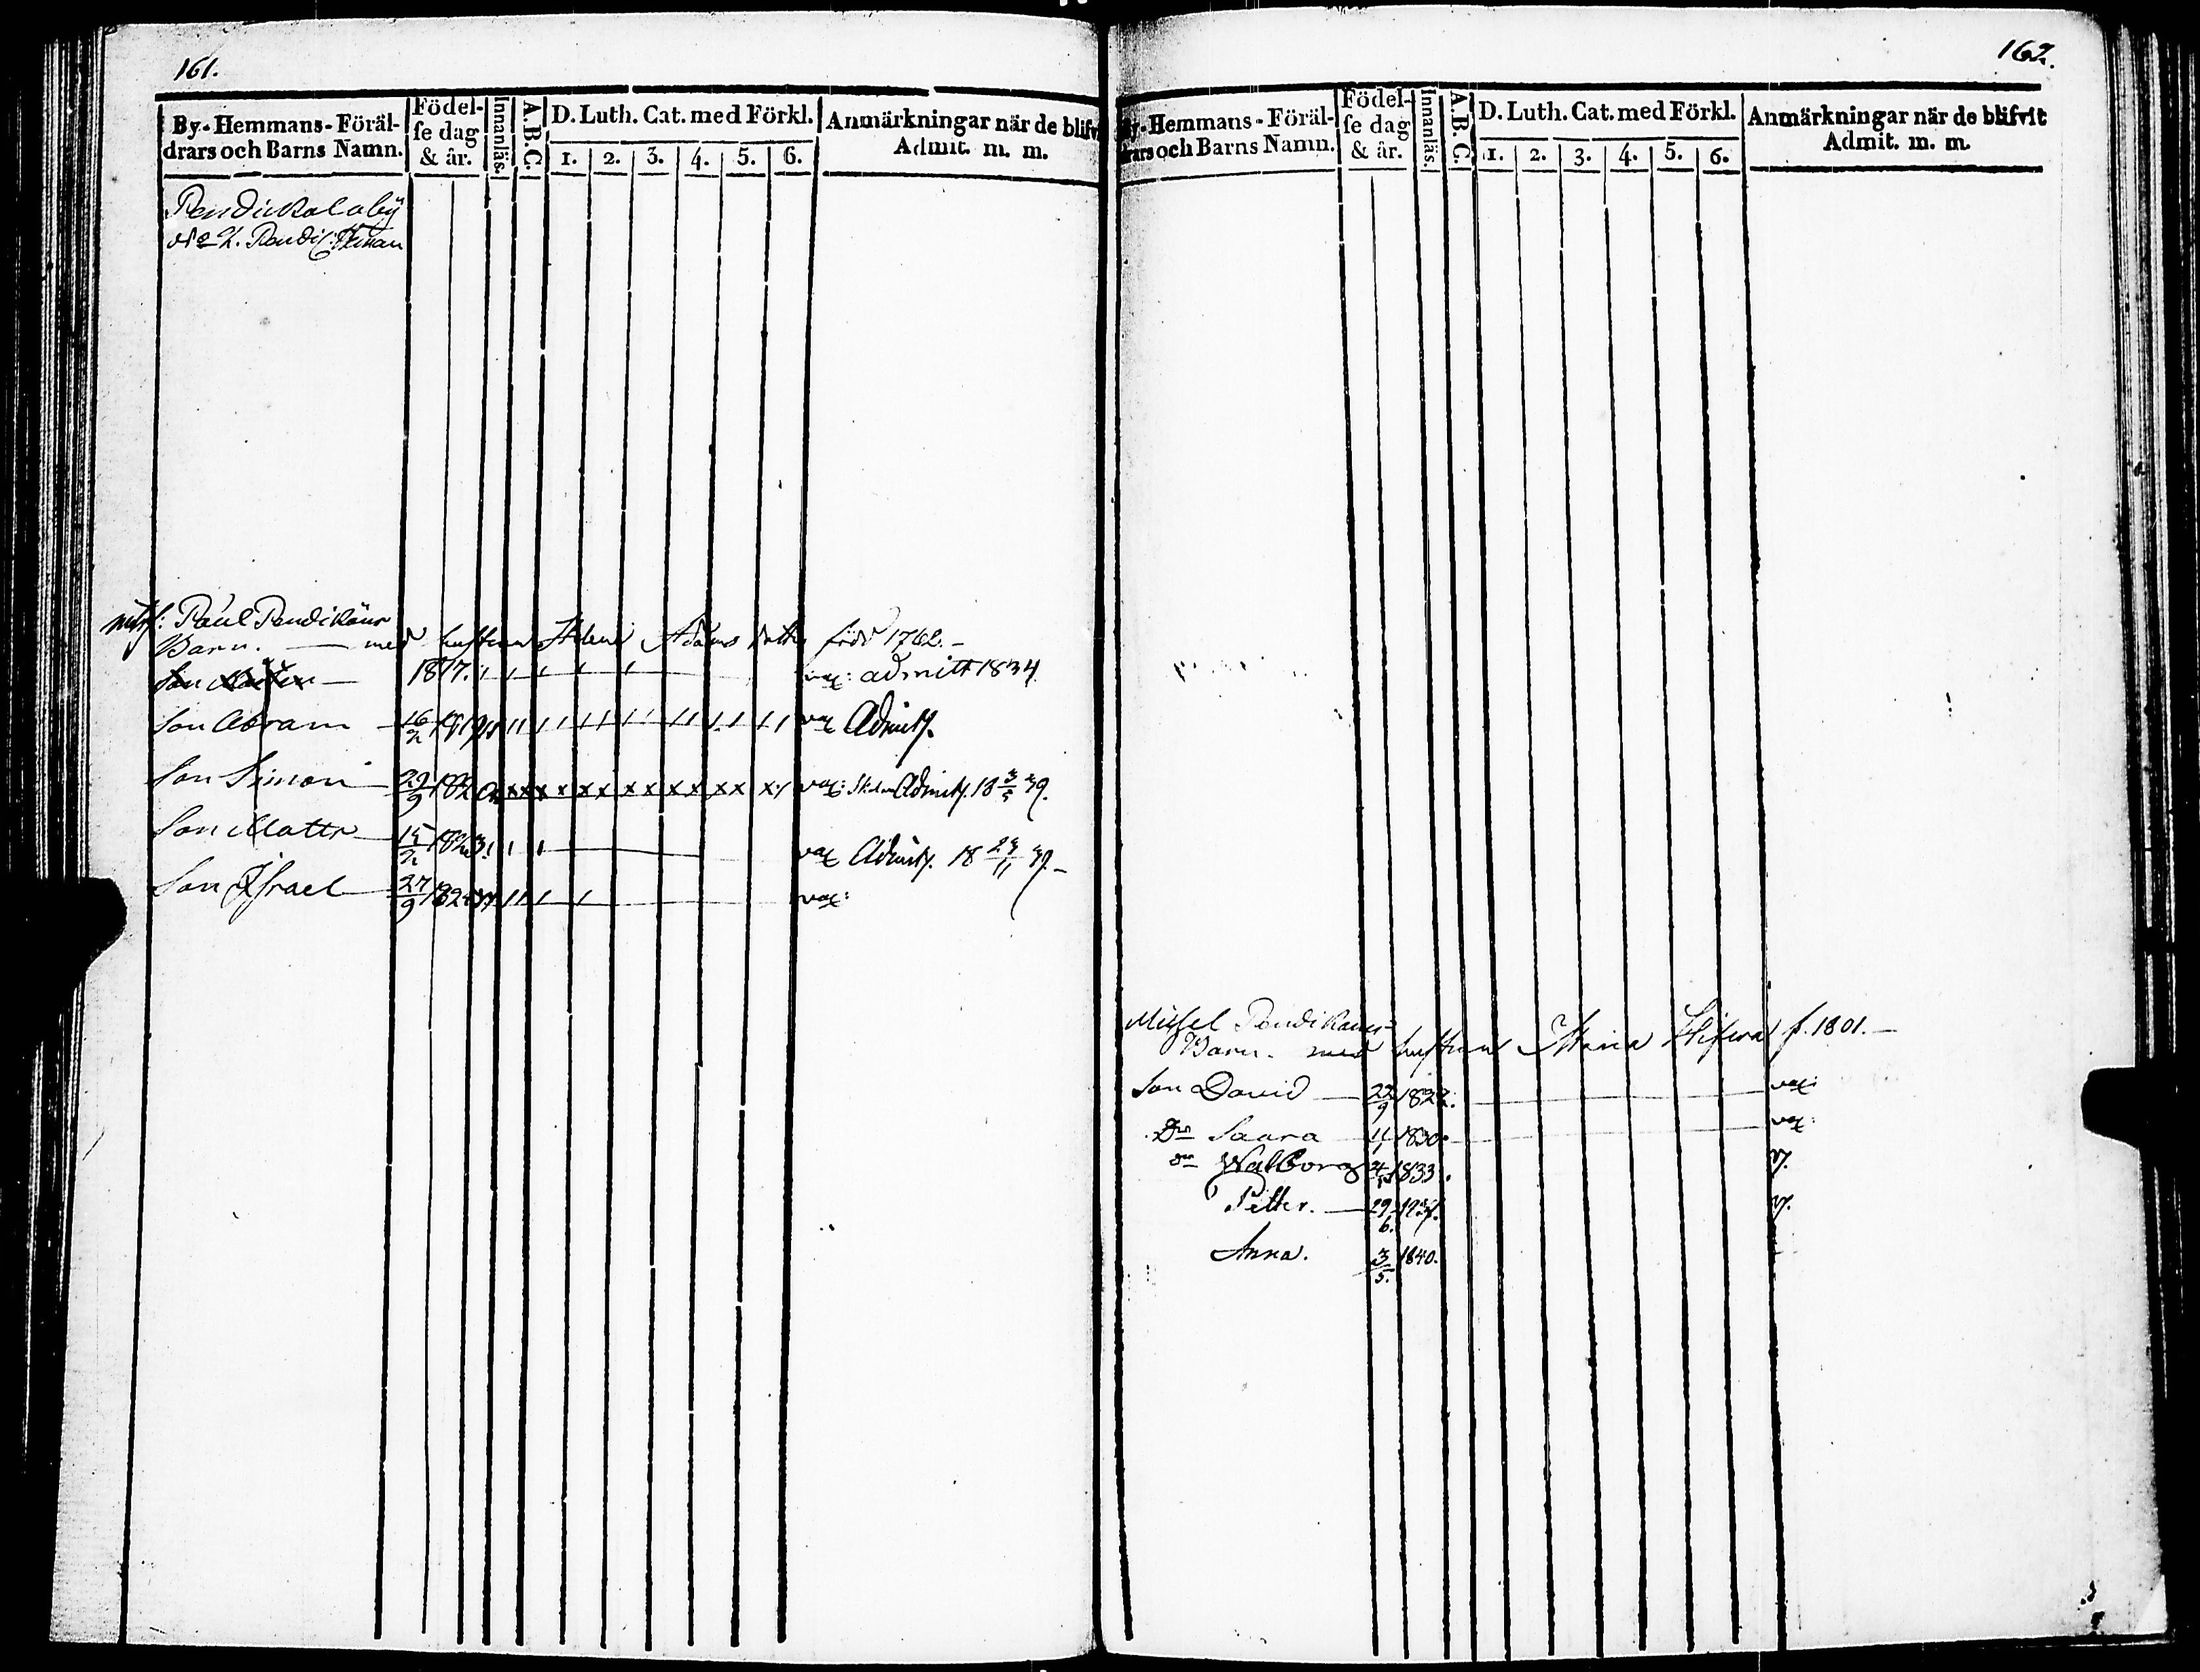 161.
By-Hemmans-Föräl-
drars och Barns Namn.
Födel-
se dag
& år.
Innanläs.
A.B.C.
D. Luth. Cat. med Förkl.
1. 2. 3. 4. 5. 6.
Anmärkningar när de blifv
Admit. m. m.
No 2.
Paul Pendikäinr
Barn. — med hustrun Helena Adams dotter född 1762.-
Son — 1817. vax: admitt 1834
Son Abram — 16/2 1819 vax Admitt.
Son Simon — 29/9 182 xx x x x x x x x x x x x vax: Admitt. 18 3/5 39.
Son Matts — 15/2 1823. vax Admitt. 18 23/11 39.-
Son Israel — 27/9 182 vax:
162.
By-Hemmans-Föräl-
drars och Barns Namn.
Födel-
se dag
& år.
Innanläs.
A.B.C.
D. Luth. Cat. med Förkl.
1. 2. 3. 4. 5. 6.
Anmärkningar när de blifvit
Admit. m. m.
Michel Pendikain
Barn. med hustrun Maria f. 1801.—
Son David — 22/9 182 vax:
Dr Saara 11/1 1830. vax:
dr Walborg 4 1833. v.
Petter. — 29/6. v.
Anna. 3/5. 1840.